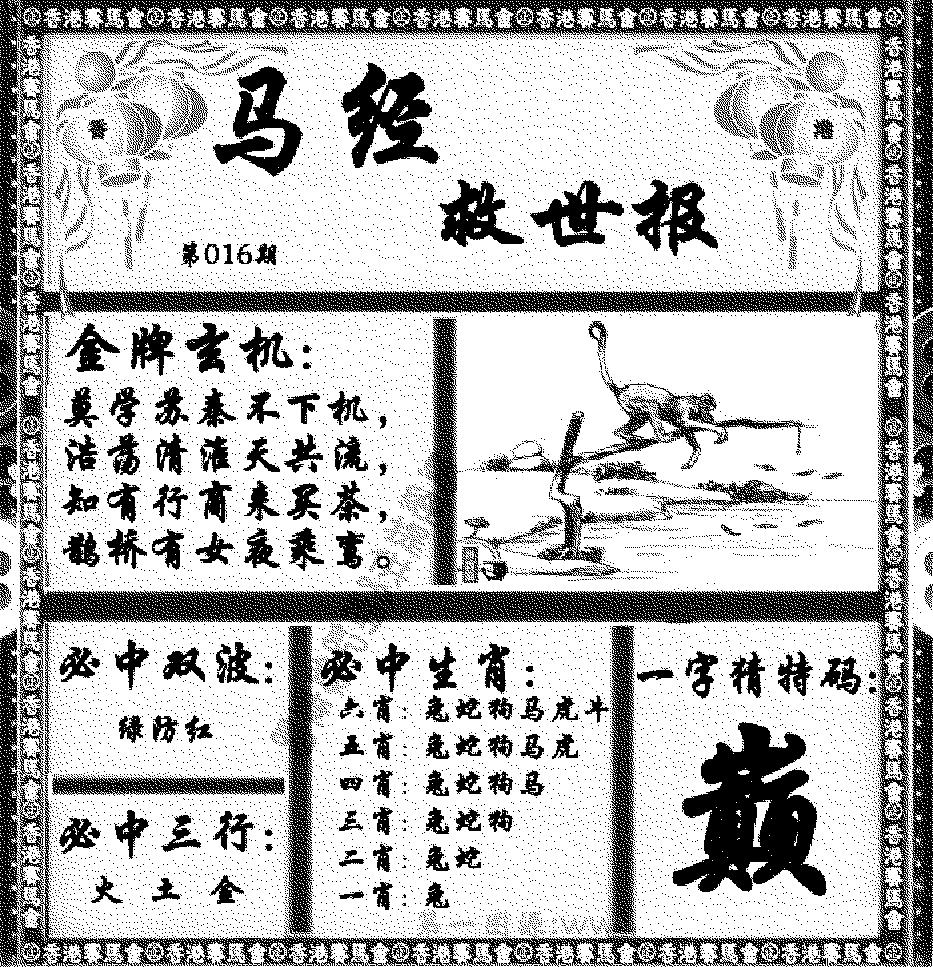 香港賽馬會 香港賽馬會 香港賽馬會 香港賽馬會 香港賽馬會 香港賽馬會 香港賽馬會
香
港
马经
救世报
第016期
金牌玄机：
莫学苏秦不下机，
浩荡清淮天共流，
知有行商来买茶，
鹊桥有女夜乘鸾。
必中双波：
绿防红
必中三行：
火 土 金
必中生肖：
六肖：兔蛇狗马虎牛
五肖：兔蛇狗马虎
四肖：兔蛇狗马
三肖：兔蛇狗
二肖：兔蛇
一肖：兔
一字猜特码：
巅
香港賽馬會 香港賽馬會 香港賽馬會 香港賽馬會 香港賽馬會 香港賽馬會 香港賽馬會